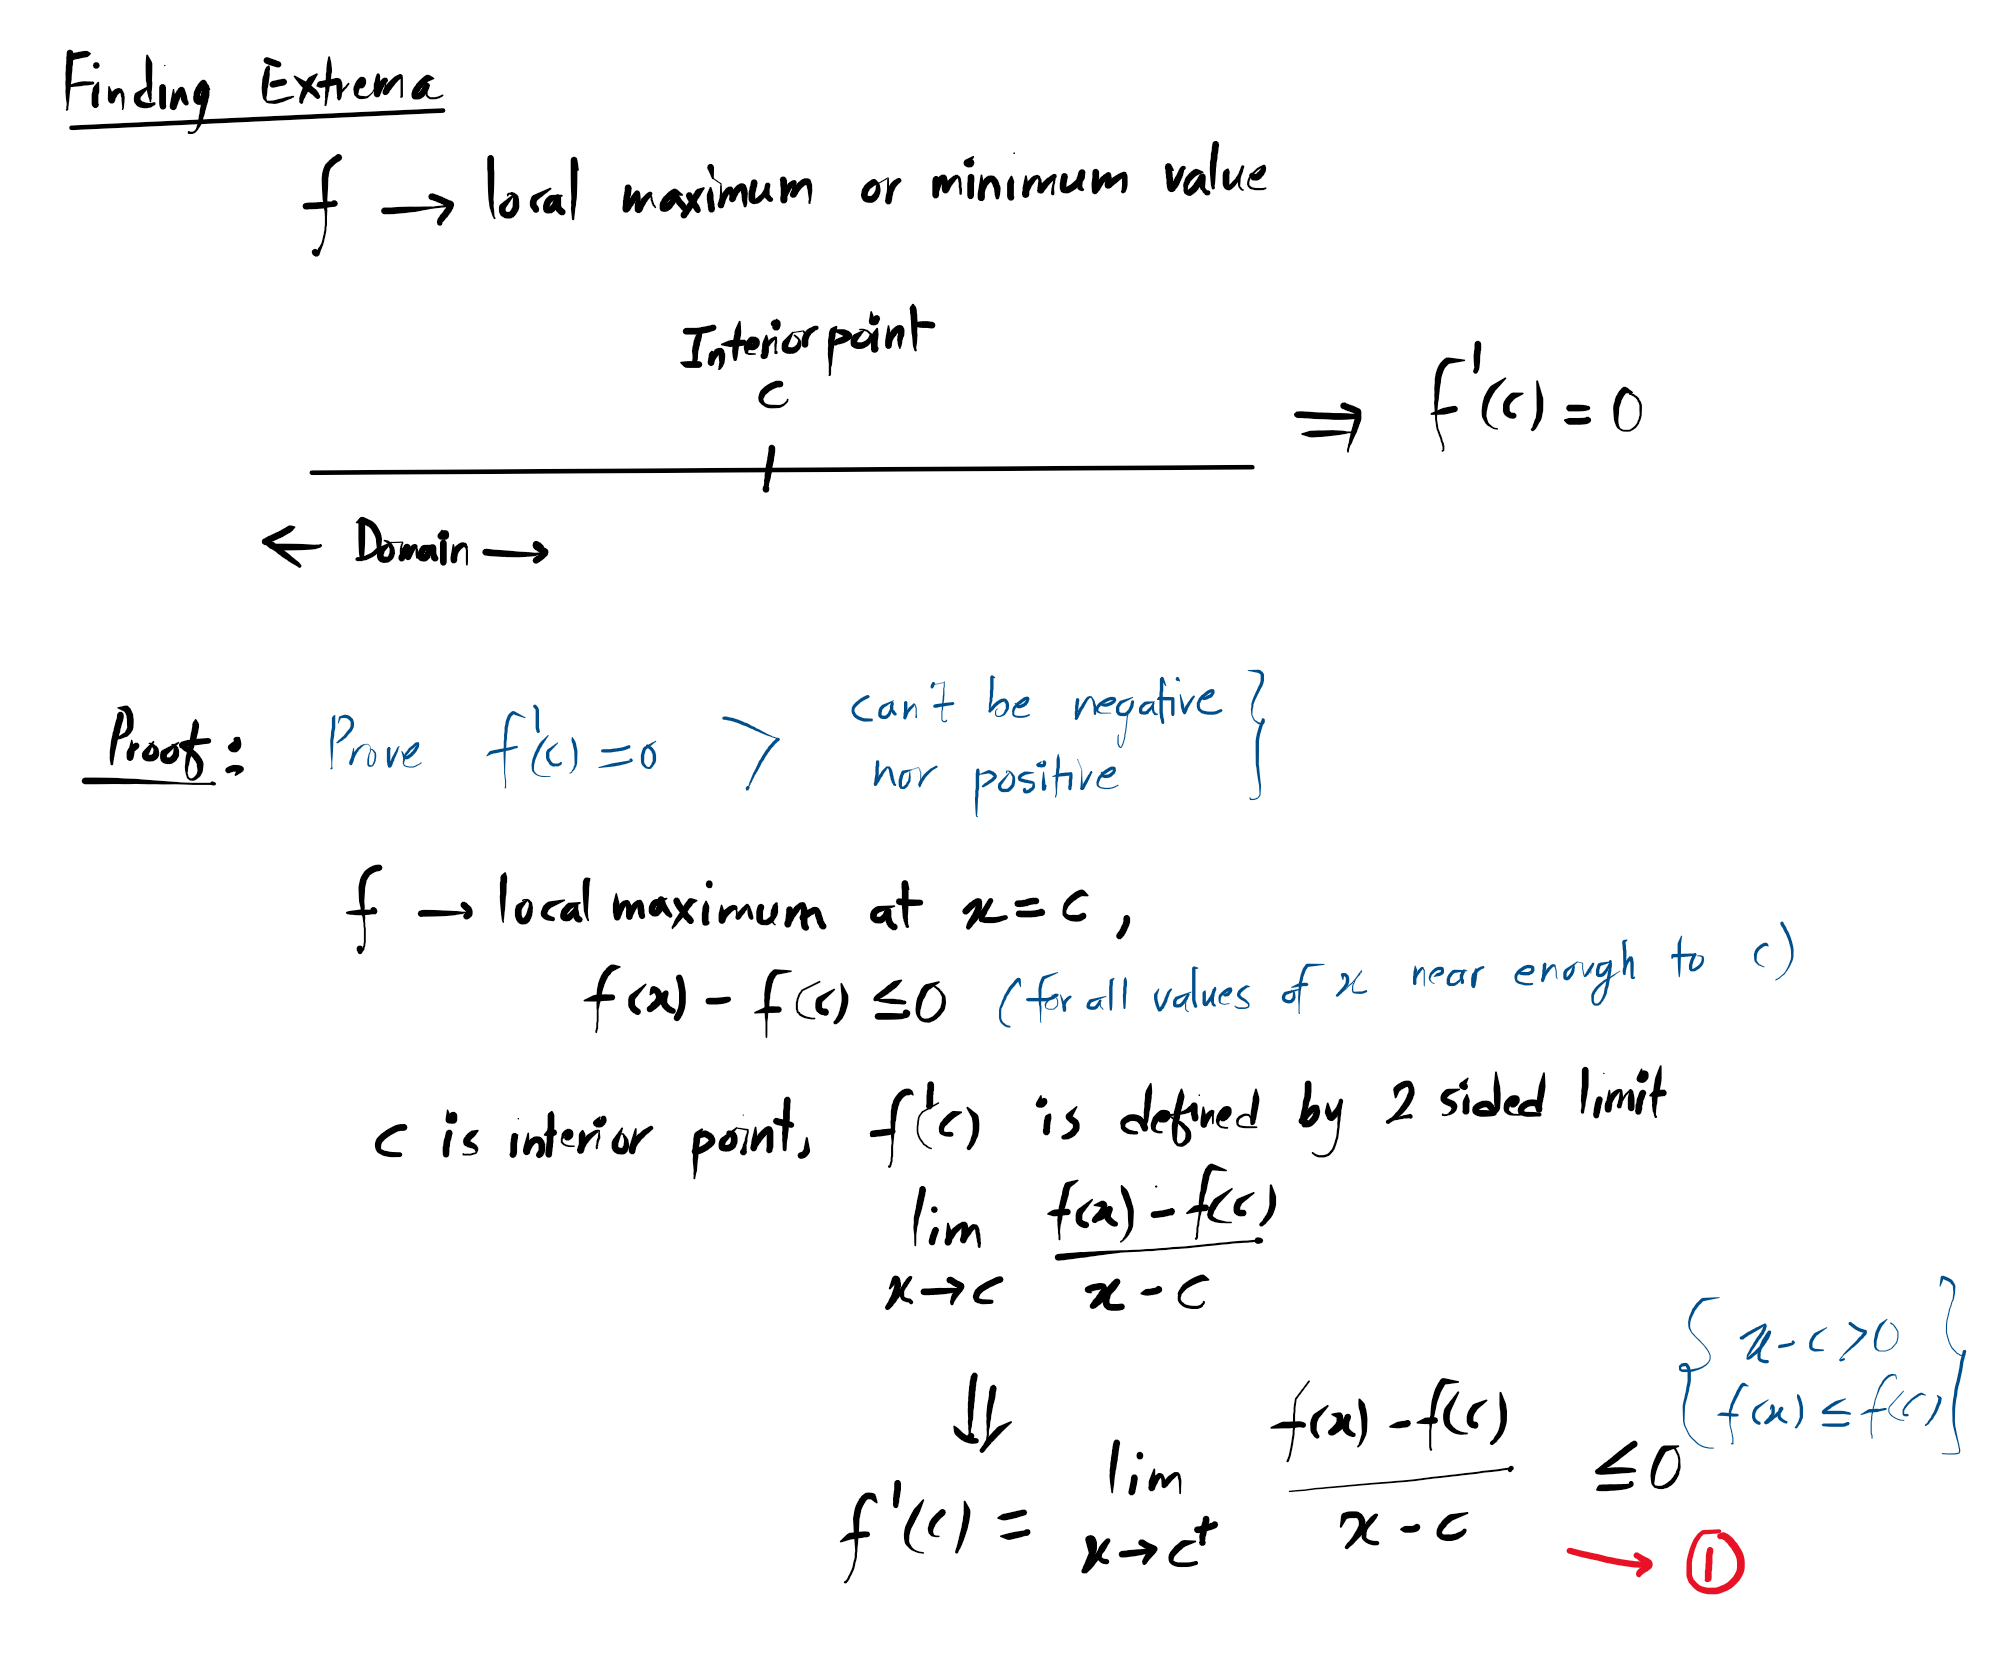 Finding Extrema
f → local maximum or minimum value
Interior point
c
⇒ f'(c) = 0
← Domain →
Proof: Prove f'(c) = 0 > can't be negative }
nor positive
f → local maximum at x = c,
f(x) - f(c) ≤ 0 (for all values of x near enough to c)
c is interior point, f'(c) is defined by 2 sided limit
lim f(x) - f(c)
x→c x - c
⇓
{ x - c > 0 }
{ f(x) ≤ f(c) }
f'(c) = lim f(x) - f(c) ≤ 0
x→c⁺ x - c
→ ①